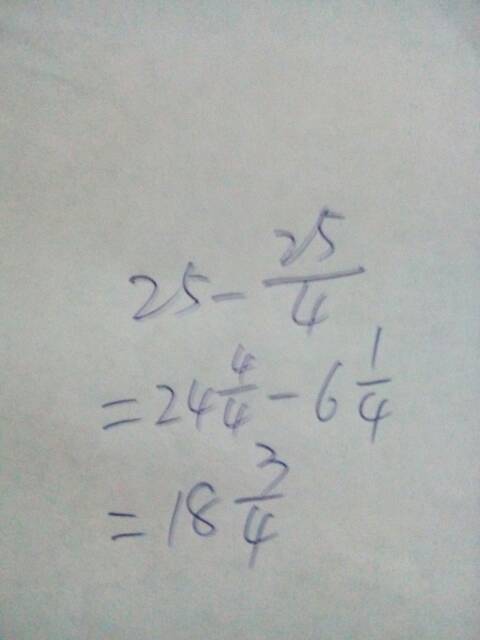 25 - 25/4
= 24 4/4 - 6 1/4
= 18 3/4